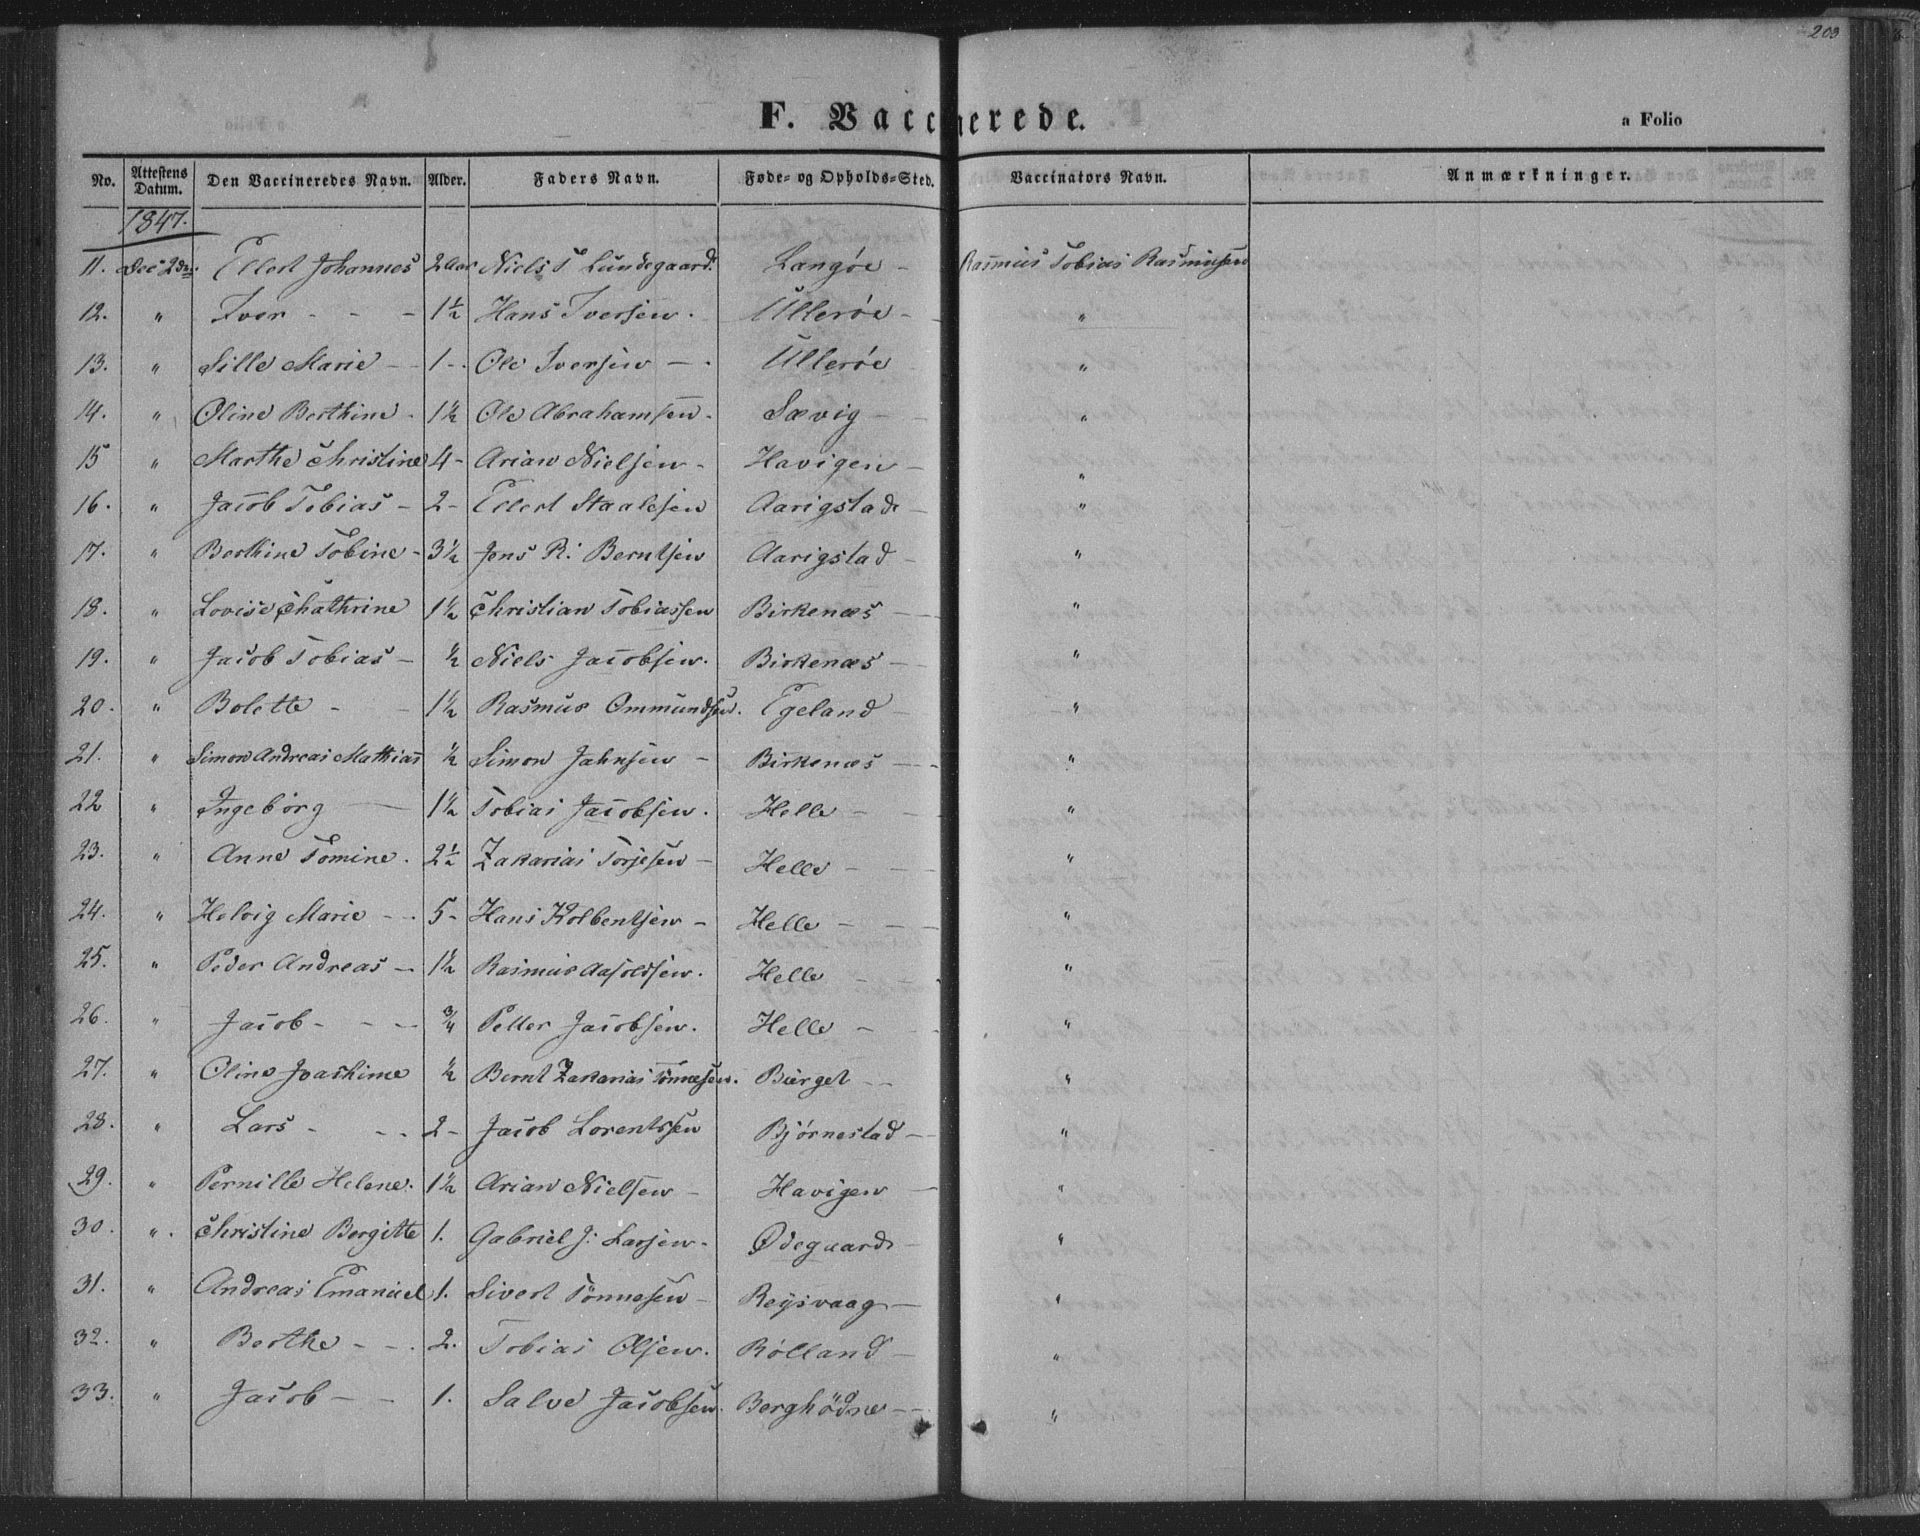 203
F. Vaccinerede.
a Folio
No. Attestens Datum. Den Vaccineredes Navn. Alder. Faders Navn. Føde- og Opholds-Sted. Vaccinators Navn. Anmærkninger.
1847.
11. Dec 2den Ellert Johannes 2 Aar Niels T Lundegaard. Langøe - Rasmus Tobias Rasmussen
12. " Iver - - - 1½ Hans Iversen. Ullerøe - "
13. " Sille Marie - - 1 - . Ole Iversen - . Ullerøe "
14. " Oline Berthine - 1½ Ole Abrahamsen. Sævig - "
15 " Marthe Christine 4 - Arian Nielsen - Havigen - "
16. " Jacob Tobias - 2 - Ellert Staalesen Aarigstad - "
17. " Berthine Tobine - 3½ Jens R: Berntsen Aarigstad - "
18. " Lovise Chathrine 1½ Christian Tobiassen Birkenæs - "
19. " Jacob Tobias - ½ Niels Jacobsen. Birkenæs - "
20. " Bolette - - 1½ Rasmus Ommundsen. Egeland - "
21. " Simon Andreas Mathias ½ Simon Jahnsen - Birkenæs - - "
22 " Ingeborg - 1½ Tobias Jacobsen. Helle - - "
23. " Anne Tomine. 2½ Zakarias Torjesen - Helle - - "
24. " Helvig Marie - - 5 - Hans Kolbentsen - Helle - - "
25. " Peder Andreas - 1½ Rasmus Aasoldsen. Helle - - "
26. " Jacob - - - ¾ Petter Jacobsen. Helle - - "
27. " Oline Joachime ½ Bernt Zakarias Tønnesen. Bierget - - "
28. " Lars - - - 2 - Jacob Lorentssen Bjørnestad - "
29. " Pernille Helene. 1½ Arian Nielsen - Havigen - "
30. " . Christine Bergitte 1. Gabriel J: Larsen - Ødegaard - "
31. " Andreas Emanuel 1. Sivert Tönnesen - Reÿsvaag - "
32. " Berthe - - . 2. Tobias Olsen. Rölland - "
33. " Jacob - - 1. Salve Jacobsen. Berghödne - - "